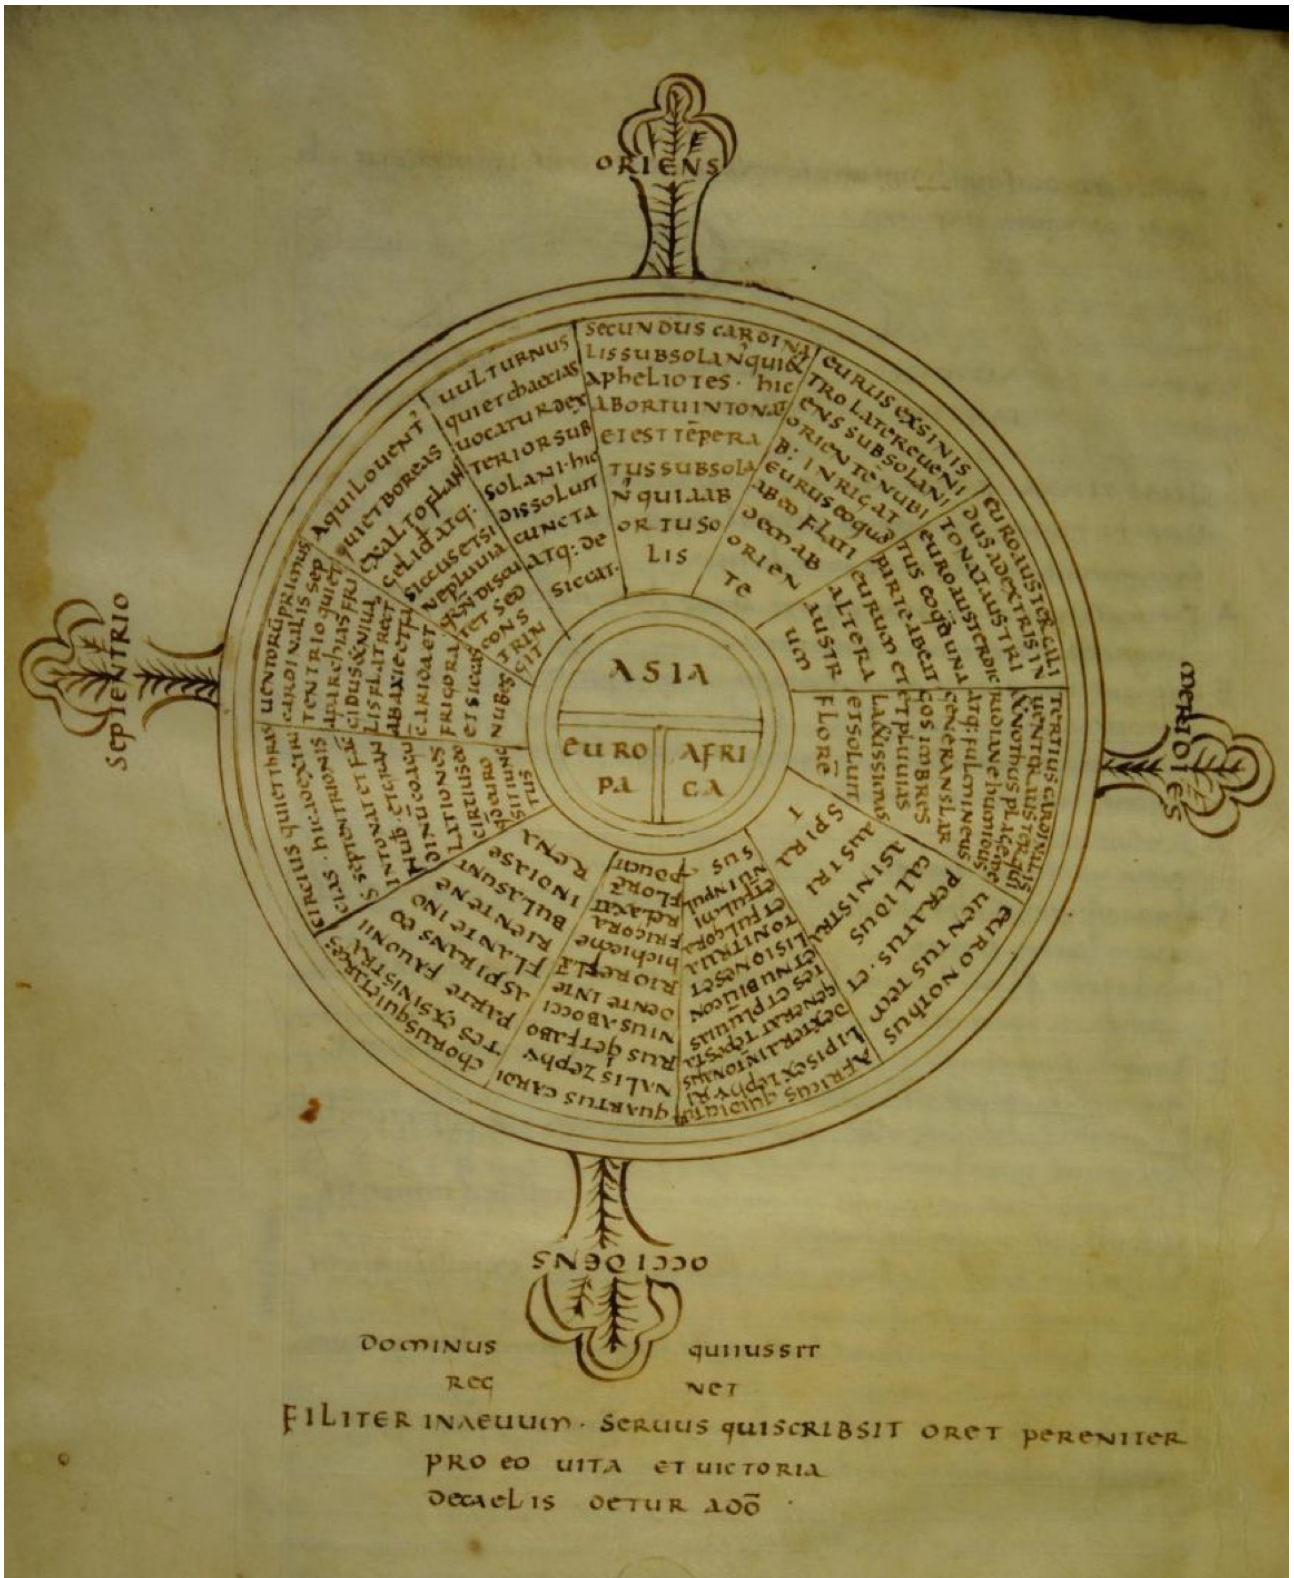 ORIENS
SECUNDUS CARDINA
LIS SUBSOLAN̄ QUI &
APHELIOTES · HIC
ABORTU INTONAT
ET EST TĒPERA
TUS SUBSOLA
N̄ QUIAAB
ORTU SO
LIS
EURUS EX SINIS
TRO LATERE UENI
ENS SUBSOLANI
ORIENTĒ NUBI
B: INRIGAT
EURUS EO QUOD
AB EO FLATI
DEM AB
ORIEN
TE
EURO AUSTER CALI
DUS ADEXTRIS IN
TONAT AUSTRI
EURO AUSTER DIC
TUS EO QD UNA
PARTE ABEAT
EURUM ET
ALTERA
AUSTR
UM
MERIDIES
TERTIUS CARDINALIS
RIDIANE HUMIDUS
ATQ: FULMINEUS
GENERANS LAR
GOS IMBRES
ET PLUUIAS
LA&ISSIMAS
ET SOLUIT
FLORĒ
EURO NOTHUS
UENTUS TEM
PERATUS · ET
CALIDUS
A SINISTRA
AUSTRI
SPIRA
T
AFRICUS QUI DICITUR
LIPIS EX ZEPHYRI
DEXTERA INTONANS
GENERAT TĒPESTA
TES ET PLUUIAS
ET NUBIŪ CON
LISIONES ET
TONITRUA
ET FULGORA
ET FULMI
NŪ INPUL
SUS
QUARTUS CARDI
NALIS ZEPHY
RUS Q ET FABO
NIUS AB OCCI
DENTE INTE
RIORE FLĀ
HIC HIEME
FRIGORA
RELAXAT
FLORĒ
PDUCIT
CHORUS QUI ET ARGES
TES EX SINISTRA
PARTE FAUONII
ASPIRANS EO
FLANTE IN O
RIENTE NE
BULA SUNT
INDIA SE
RENA
CIRCIUS QUI ET THRAS
CIAS · HIC
S SEPTENTRIONIS
INTONAT ET
LATIONES
TUS
SEPTENTRIO
UENTORŪ PRIMUS
CARDINALIS SEP
TENTRIO QUI ET
APARCHIAS FRI
GIDUS & NIUA
LIS FLAT RECT
AB AXE ET FA
CIT ARIDA ET
FRIGORA
ET SICCAS
NUBES
AQUILO UENT'
QUI ET BOREAS
EX ALTO FLAN
GELID' ATQ:
SICCUS ET SI
NE PLUUIA
Q N̄ DISCU
TET SED
CONS
TRIN
GIT
UULTURNUS
QUI ET CHAECIAS
UOCATUR DEX
TERIOR SUB
SOLANI · HIC
DISSOLUIT
CUNCTA
ATQ: DE
SICCAT ·
ASIA
EURO
PA
AFRI
CA
OCCIDENS
DOMINUS QUI IUSSIT
REG NET
FILITER IN AEUUM · SERUUS QUI SCRIBSIT ORET PERENITER
PRO EO UITA ET UICTORIA
DE CAELIS DETUR A DŌ ·